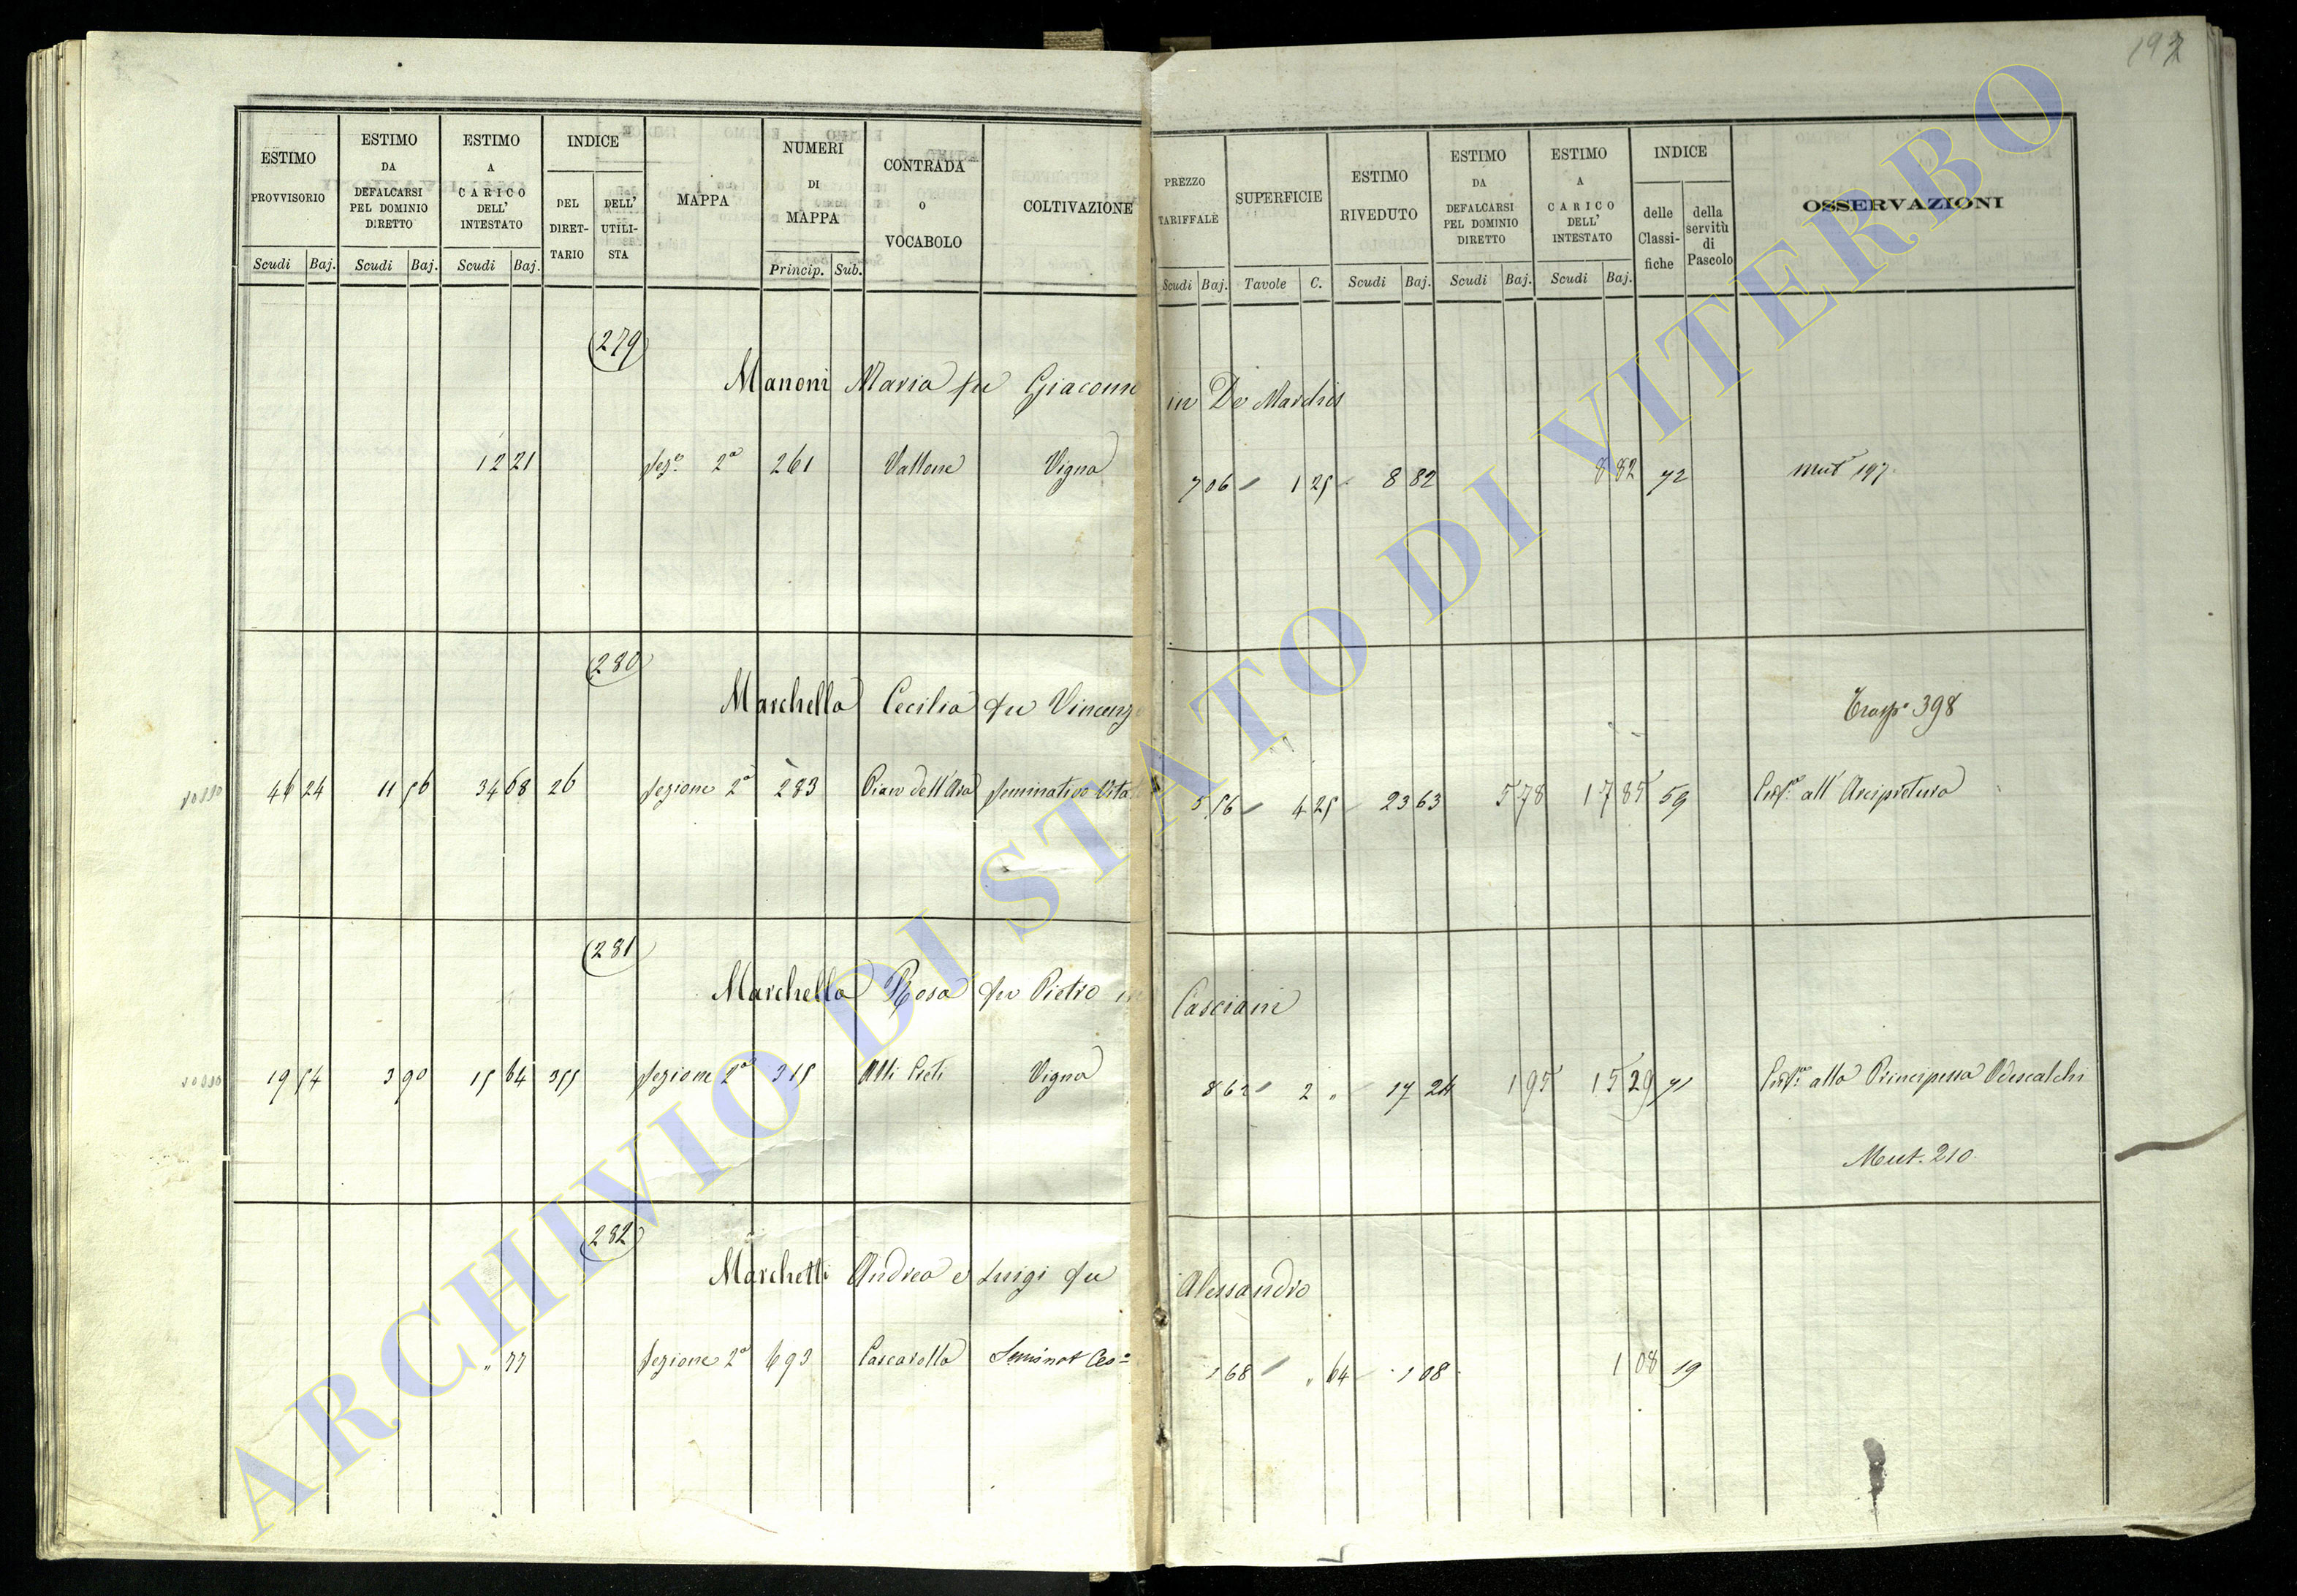 192
ESTIMO PROVVISORIO
ESTIMO DA DEFALCARSI PEL DOMINIO DIRETTO
ESTIMO A CARICO DELL' INTESTATO
INDICE
DEL DIRET-TARIO
DELL' UTILI-STA
MAPPA
NUMERI DI MAPPA
CONTRADA O VOCABOLO
COLTIVAZIONE
PREZZO TARIFFALE
SUPERFICIE
ESTIMO RIVEDUTO
ESTIMO DA DEFALCARSI PEL DOMINIO DIRETTO
ESTIMO A CARICO DELL' INTESTATO
INDICE
delle Classi-fiche
della servitù di Pascolo
OSSERVAZIONI
Scudi Baj. Scudi Baj. Scudi Baj. Princip. Sub. Scudi Baj. Tavole C. Scudi Baj. Scudi Baj. Scudi Baj.
279
Manoni Maria fu Giacomo in De Marchis
12 21 Sezo. 2a 261 Vallone Vigna 7 06 1 25 8 82 8 82 72 Mut 197
280
Marchella Cecilia fu Vincenzo
Trasp. 398
rosso 46 24 11 56 34 68 26 Sezione 2a 283 Piano dell'Ara Seminativo Vita 5 56 4 25 23 63 5 78 17 85 59 all'Arcipretura
281
Marchella Rosa fu Pietro in Casciani
rosso 19 54 3 90 15 64 355 Sezione 2a 315 Alli Preti Vigna 8 62 2 " 17 24 1 95 15 29 71 alla Principessa Odescalchi
Mut. 210.
282
Marchetti Andrea e Luigi fu Alessandro
" 77 Sezione 2a 693 Cascarella Seminat 1 68 " 64 1 08 1 08 19
ARCHIVIO DI STATO DI VITERBO